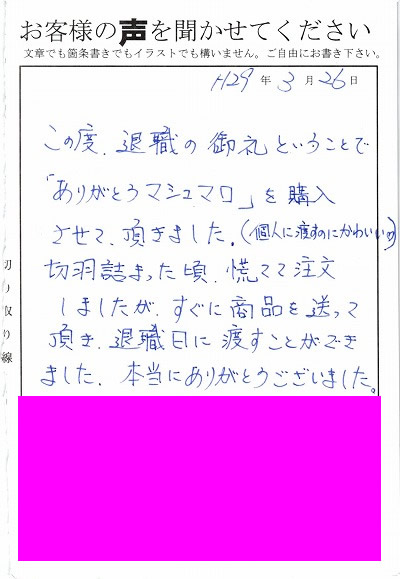 お客様の声を聞かせてください
文章でも箇条書きでもイラストでも構いません。ご自由にお書き下さい。
H29年3月26日
この度、退職の御礼ということで
「ありがとうマシュマロ」を購入
させて、頂きました。(個人に渡すのにかわいいの)
切羽詰まった頃、慌てて注文
しましたが、すぐに商品を送って
頂き、退職日に渡すことができ
ました。本当にありがとうございました。
切り取り線